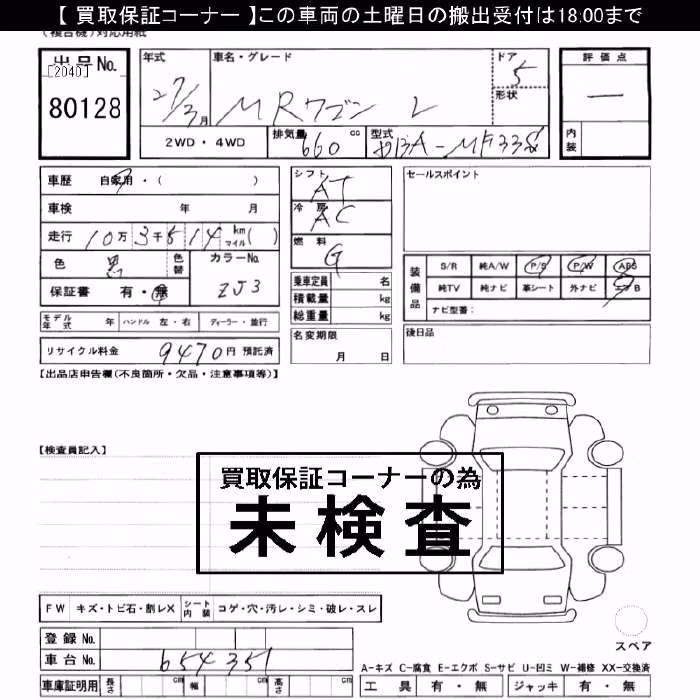 【 買取保証コーナー 】この車両の土曜日の搬出受付は18:00まで
(複合機)対応用紙
出品No.
[2040]
80128
年式
27/3月
車名・グレード
MRワゴン L
ドア
5
形状
評価点
—
内装
2WD・4WD
排気量
660 cc
型式
DBA-MF33S
車歴 自家用・( )
車検 年 月
走行 10万3千514 km マイル( )
色 黒 色替 カラーNo.
ZJ3
保証書 有・無
シフト
AT
冷房
AC
燃料
G
セールスポイント
装備品
S/R 純A/W P/S P/W ABS
純TV 純ナビ 革シート 外ナビ エアB
ナビ型番:
乗車定員 名
積載量 kg
総重量 kg
モデル年式 年 ハンドル 左・右 ディーラー・並行
名変期限
月 日
後日品
リサイクル料金 9470円 預託済
【出品店申告欄(不良箇所・欠品・注意事項等)】
【検査員記入】
買取保証コーナーの為
未検査
FW キズ・トビ石・割レX シート内装 コゲ・穴・汚レ・シミ・破レ・スレ
登録 No.
車台 No. 654351
スペア
A-キズ C-腐食 E-エクボ S-サビ U-凹ミ W-補修 XX-交換済
車庫証明用 長さ cm 幅 cm 高さ cm
工具 有・無 ジャッキ 有・無